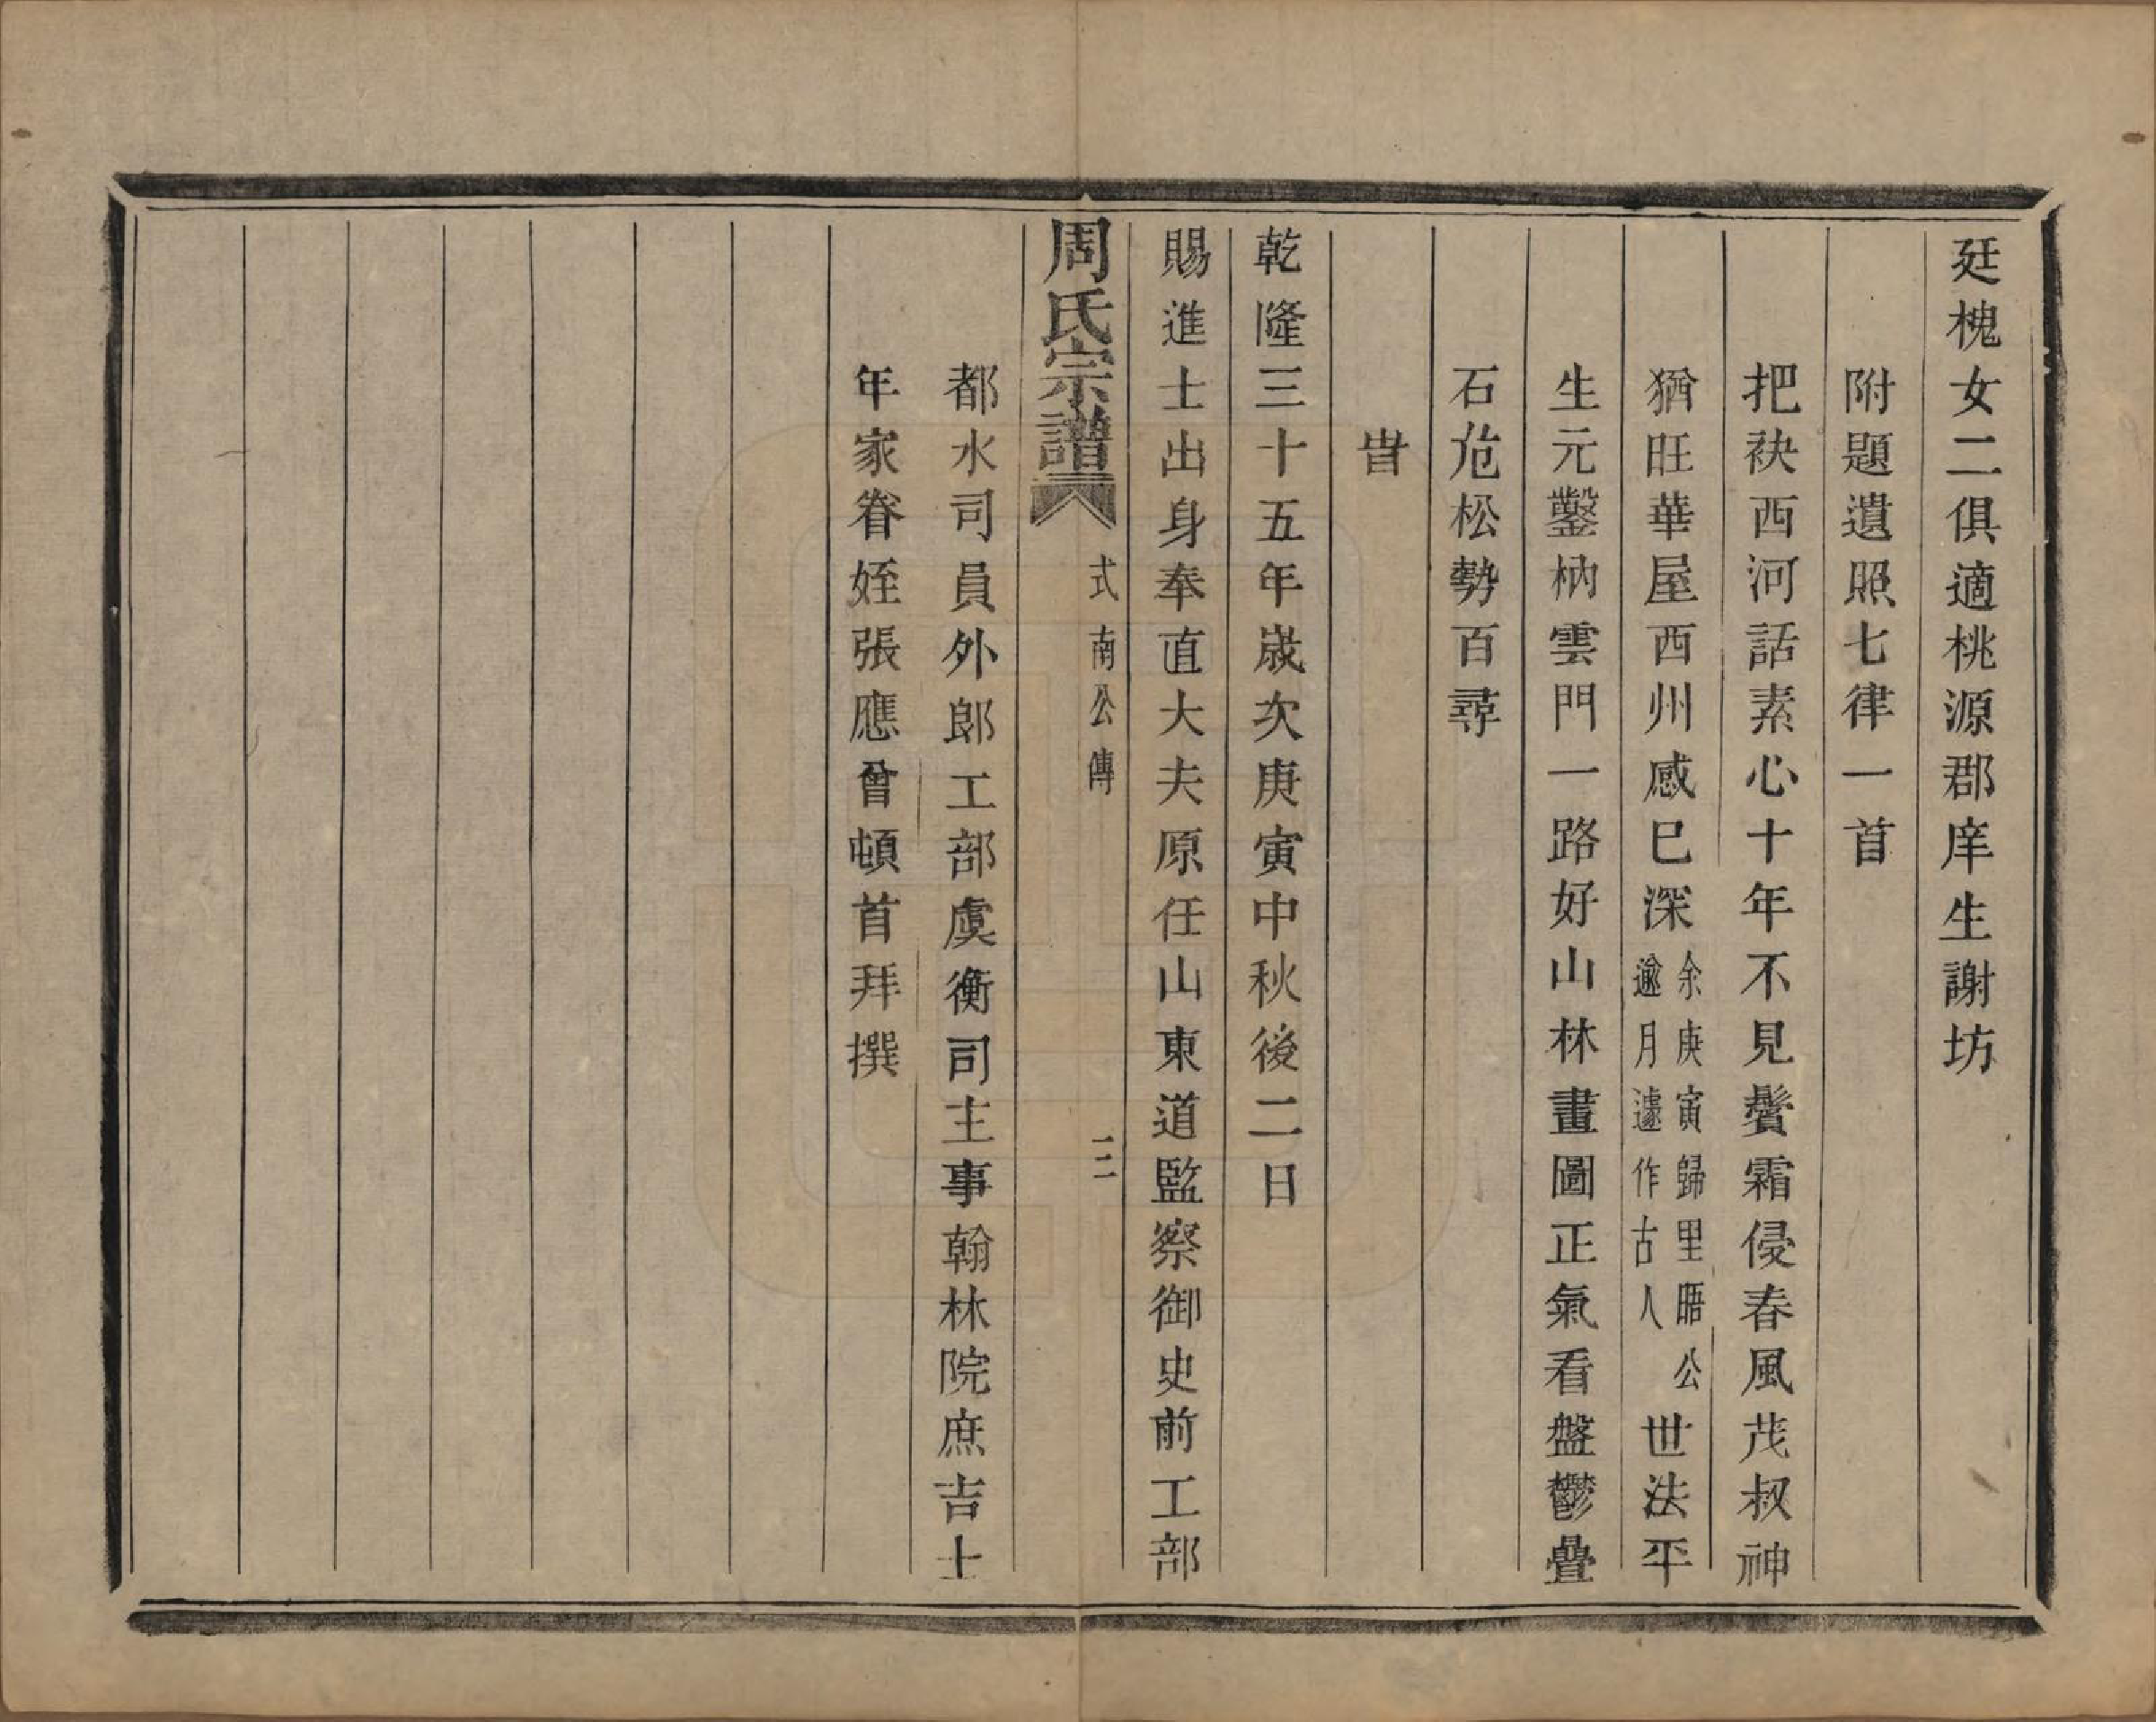 廷槐女二俱適桃源郡庠生謝坊
附題遺照七律一首
把袂西河話素心十年不見鬢霜侵春風茂叔神
猶旺華屋西州感已深余庚寅歸里晤公逾月遽作古人世法平
生元鑿枘雲門一路好山林畫圖正氣看盤鬱疊
石危松勢百尋
旹
乾隆三十五年歲次庚寅中秋後二日
賜進士出身奉直大夫原任山東道監察御史前工部
周氏宗譜 式南公傳 二
都水司員外郎工部虞衡司主事翰林院庶吉士
年家眷姪張應曾頓首拜撰